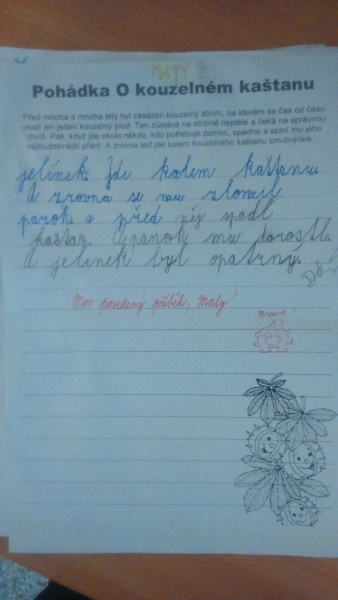 MATY Z.
Pohádka O kouzelném kaštanu
Před mnoha a mnoha lety byl zasazen kouzelný strom, na kterém se čas od času
urodí jen jeden kouzelný plod. Ten zůstává na stromě nejdéle a čeká na správnou
chvíli. Pak, když jde okolo někdo, kdo potřebuje pomoc, spadne a splní mu jeho
nejtoužebnější přání. A zrovna teď jde kolem kouzelného kaštanu smutný/á/é
jelínek. Jde kolem kaštanu.
A zrovna se mu zlomil
parok a před něj spadl
kaštan. A parok mu dorostl.
A jelínek byl opatrný.
Moc povedený příběh, Maty!